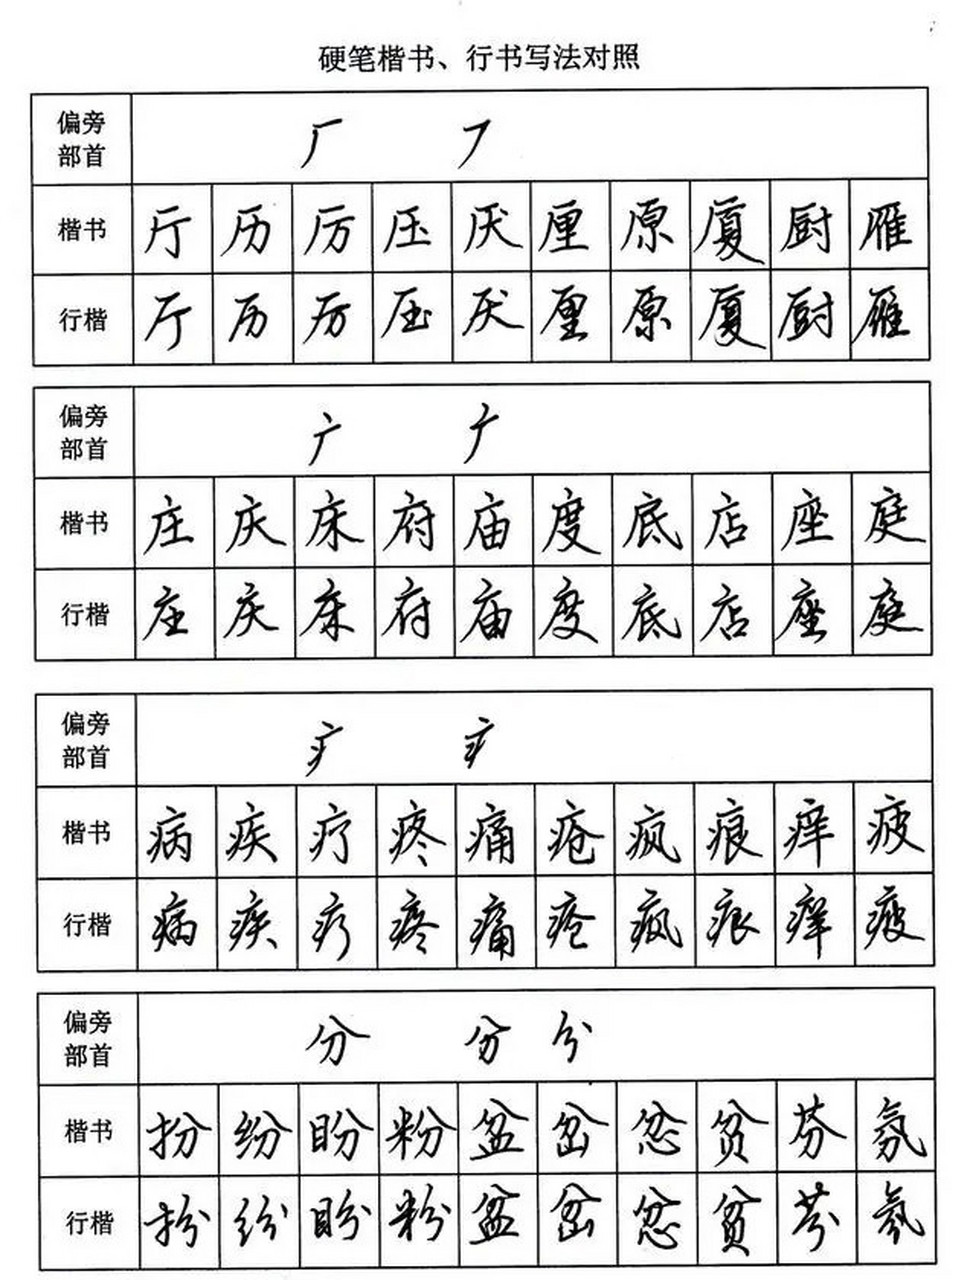 硬笔楷书、行书写法对照
偏旁部首 厂 厂
楷书 厅 历 厉 压 厌 厘 原 厦 厨 雁
行楷 厅 历 厉 压 厌 厘 原 厦 厨 雁
偏旁部首 广 广
楷书 庄 庆 床 府 庙 度 底 店 座 庭
行楷 庄 庆 床 府 庙 度 底 店 座 庭
偏旁部首 疒 疒
楷书 病 疾 疗 疼 痛 疮 疯 痕 痒 疲
行楷 病 疾 疗 疼 痛 疮 疯 痕 痒 疲
偏旁部首 分 分 分
楷书 扮 纷 盼 粉 盆 岔 忿 贫 芬 氛
行楷 扮 纷 盼 粉 盆 岔 忿 贫 芬 氛